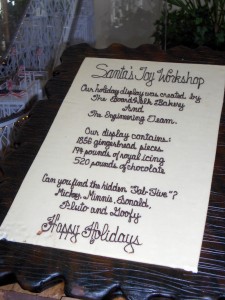 Santa's Toy Workshop
Our holiday display was created by
The Boardwalk Bakery
And
The Engineering Team.
Our display contains:
1836 gingerbread pieces
194 pounds of royal icing
520 pounds of chocolate
Can you find the hidden "Fab-Five"?
Mickey, Minnie, Donald,
Pluto and Goofy
Happy Holidays